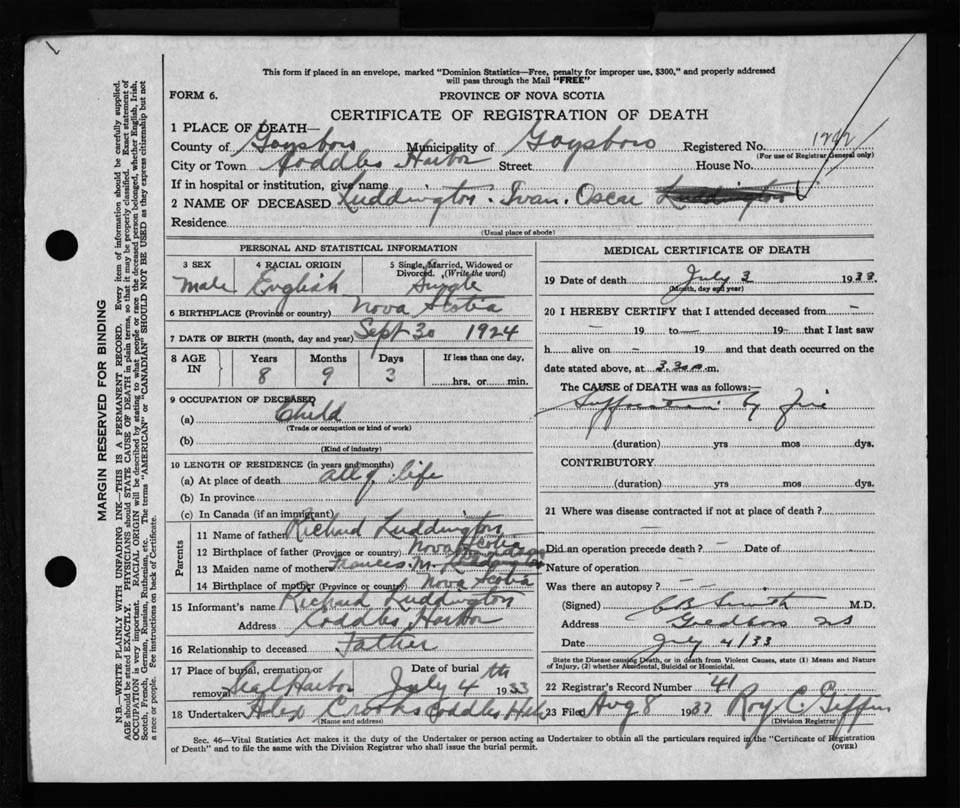 This form if placed in an envelope, marked "Dominion Statistics—Free, penalty for improper use, $300," and properly addressed
will pass through the Mail "FREE"
FORM 6.
PROVINCE OF NOVA SCOTIA
CERTIFICATE OF REGISTRATION OF DEATH
1 PLACE OF DEATH—
County of Goysboro Municipality of Goysboro Registered No.
(For use of Registrar General only)
City or Town Coddles Harbor Street House No.
If in hospital or institution, give name
2 NAME OF DECEASED Luddington. Ivan. Oscar Luddington
Residence
(Usual place of abode)
PERSONAL AND STATISTICAL INFORMATION
3 SEX
4 RACIAL ORIGIN
5 Single, Married, Widowed or
Divorced. (Write the word)
Male English Single
6 BIRTHPLACE (Province or country) Nova Scotia
7 DATE OF BIRTH (month, day and year) Sept 30 1924
8 AGE IN Years Months Days If less than one day,
8 9 3 hrs. or min.
9 OCCUPATION OF DECEASED
(a) Child
(Trade or occupation or kind of work)
(b)
(Kind of industry)
10 LENGTH OF RESIDENCE (in years and months)
(a) At place of death all of life
(b) In province
(c) In Canada (if an immigrant)
Parents
11 Name of father Richard Luddington
12 Birthplace of father (Province or country) Nova Scotia
13 Maiden name of mother Frances M.
14 Birthplace of mother (Province or country) Nova Scotia
15 Informant's name Richard Luddington
Address Coddles Harbor
16 Relationship to deceased Father
17 Place of burial, cremation or
removal Seal Harbor
Date of burial
July 4th 1933
18 Undertaker Alex Crooks Coddles Hbr
(Name and address)
MEDICAL CERTIFICATE OF DEATH
19 Date of death July 3 1933.
(Month, day and year)
20 I HEREBY CERTIFY that I attended deceased from —
— 19 to — 19 — that I last saw
h alive on — 19 and that death occurred on the
date stated above, at 3.30 a.m.
The CAUSE of DEATH was as follows:—
Suffocation by fire
(duration) yrs mos dys.
CONTRIBUTORY
(duration) yrs mos dys.
21 Where was disease contracted if not at place of death?
Did an operation precede death? — Date of
Nature of operation
Was there an autopsy? —
(Signed) C B Smith M.D.
Address Goldboro NS
Date July 4/33
State the Disease causing Death, or in death from Violent Causes, state (1) Means and Nature
of Injury, (2) whether Accidental, Suicidal or Homicidal.
22 Registrar's Record Number 41
23 Filed Aug 8 1933 Roy C. Giffin
(Division Registrar)
Sec. 46—Vital Statistics Act makes it the duty of the Undertaker or person acting as Undertaker to obtain all the particulars required in the "Certificate of Registration
of Death" and to file the same with the Division Registrar who shall issue the burial permit.
(OVER)
MARGIN RESERVED FOR BINDING
N.B.—WRITE PLAINLY WITH UNFADING INK—THIS IS A PERMANENT RECORD. Every item of information should be carefully supplied.
AGE should be stated EXACTLY. PHYSICIANS should STATE CAUSE OF DEATH in plain terms, so that it may be properly classified. Exact statement of
OCCUPATION is very important. RACIAL ORIGIN will be described by stating to what people or race the deceased person belonged, whether English, Irish,
Scotch, French, German, Russian, Ruthenian, etc. The terms "AMERICAN" or "CANADIAN" SHOULD NOT BE USED as they express citizenship but not
a race or people. See instructions on back of Certificate.